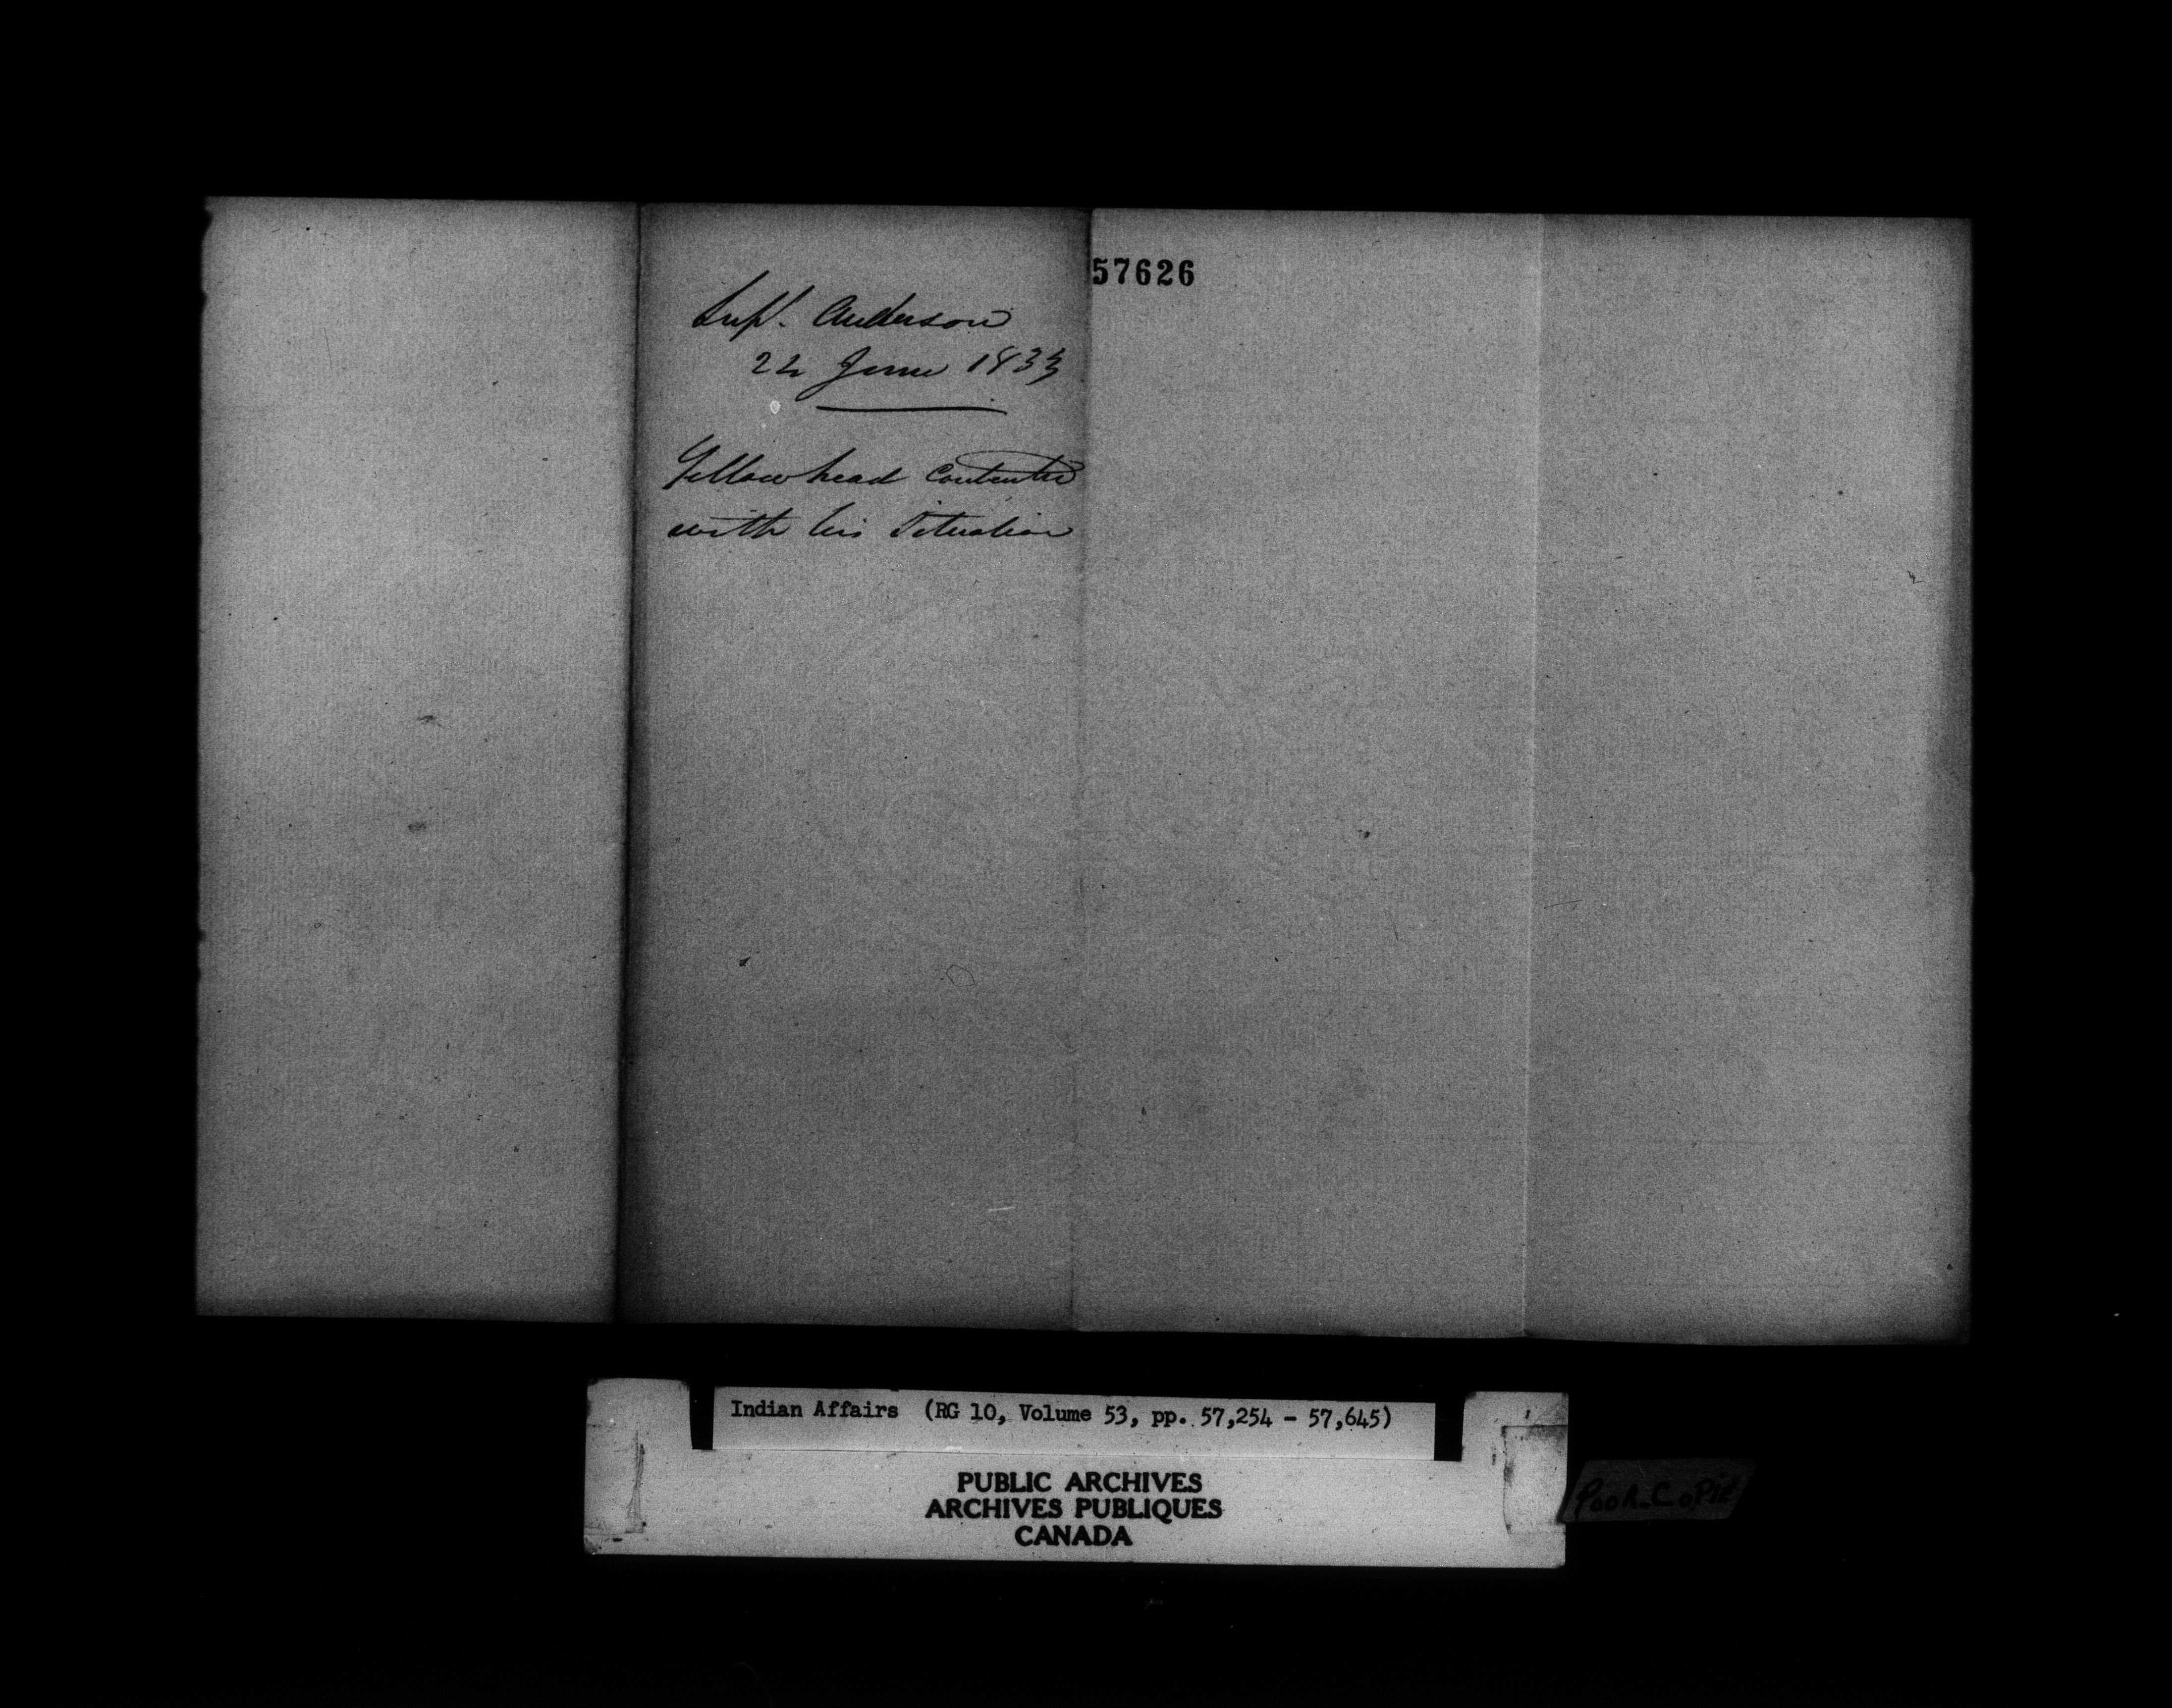 57626
Supt. Anderson
22 June 1833
Yellowhead Contented
with his Situation
Indian Affairs (RG 10, Volume 53, pp. 57,254 - 57,645)
PUBLIC ARCHIVES
ARCHIVES PUBLIQUES
CANADA
POOR COPIE